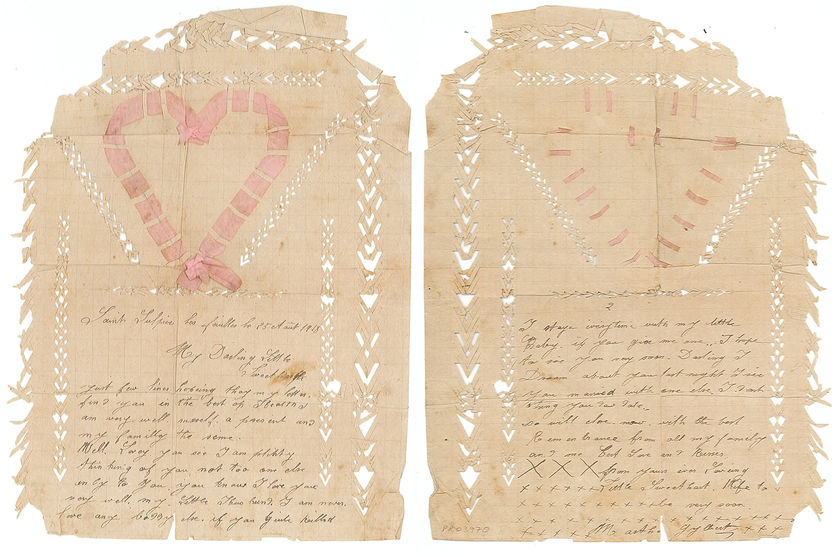 Saint Sulpice les feuilles le 25 Aout 1918
My Darling Little
Sweetheart
Just few lines hoping they my letter
find you in the best of Health I
am very well meself a present and
my familly the same.
Well. Lovey you see I am plenty
thinking of you not too one else
only to you you know I love you
very well my Little Husband. I am never
love any boddy else. if you
2
I stay everytime with my little
Baby. if you give me one.. I hope
to see you very soon. Darling I
Dream about you last night I see
you maried with one else I dont
thing you do dat.
so will close now. with the best
Remembrance from all my familly
and me best Love and Kisses
X X X from yours ever Loving
x x x x x x x Little Sweetheart Wife to
x x x x x x x x x be very soon.
x x x x x x x x x x x x x x x
x x x x x x Martha x x x
PR03970